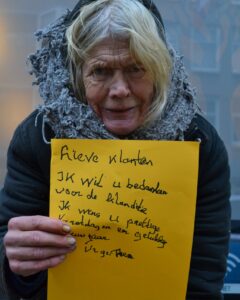 Lieve klanten
IK Wil u bedanken
voor de klandizie
IK Wens u prettige
Kerstdagen en gelukkig
Nieuwjaar